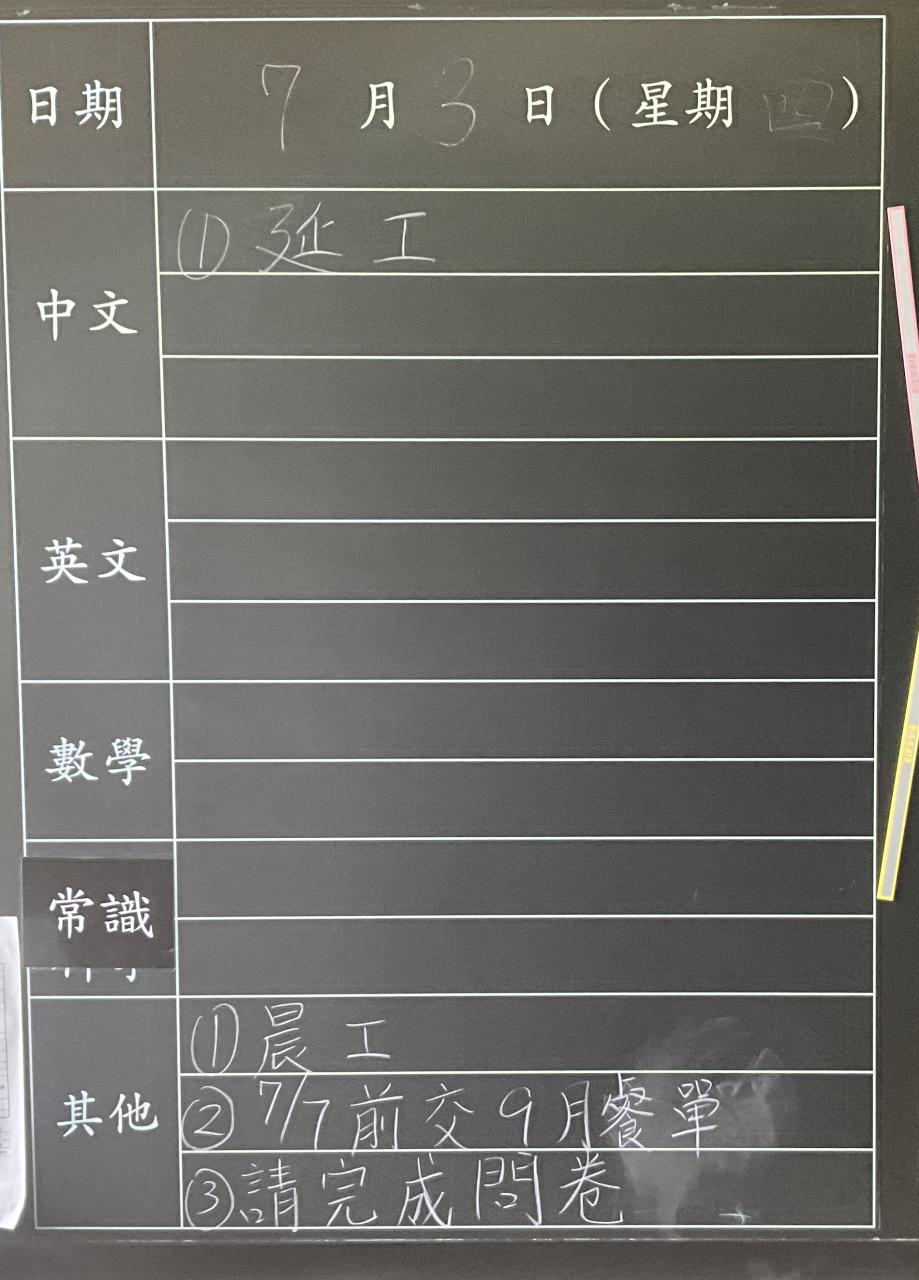 日期 7月3日(星期四)
中文 ①延工
英文
數學
常識
其他 ①晨工
②7/7前交9月餐單
③請完成問卷